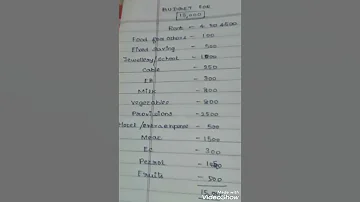 BUDGET FOR
15,000
Rent - 4500
Food for others - 100
Fixed saving - 500
Jewellery/school - 1000
Cable - 250
EB - 300
Milk - 800
Vegetables - 800
Provisions - 2500
Hotel/extra expense - 500
Meat - 1500
EC - 300
Petrol
Fruits - 500
15,000
Made with
VideoShow